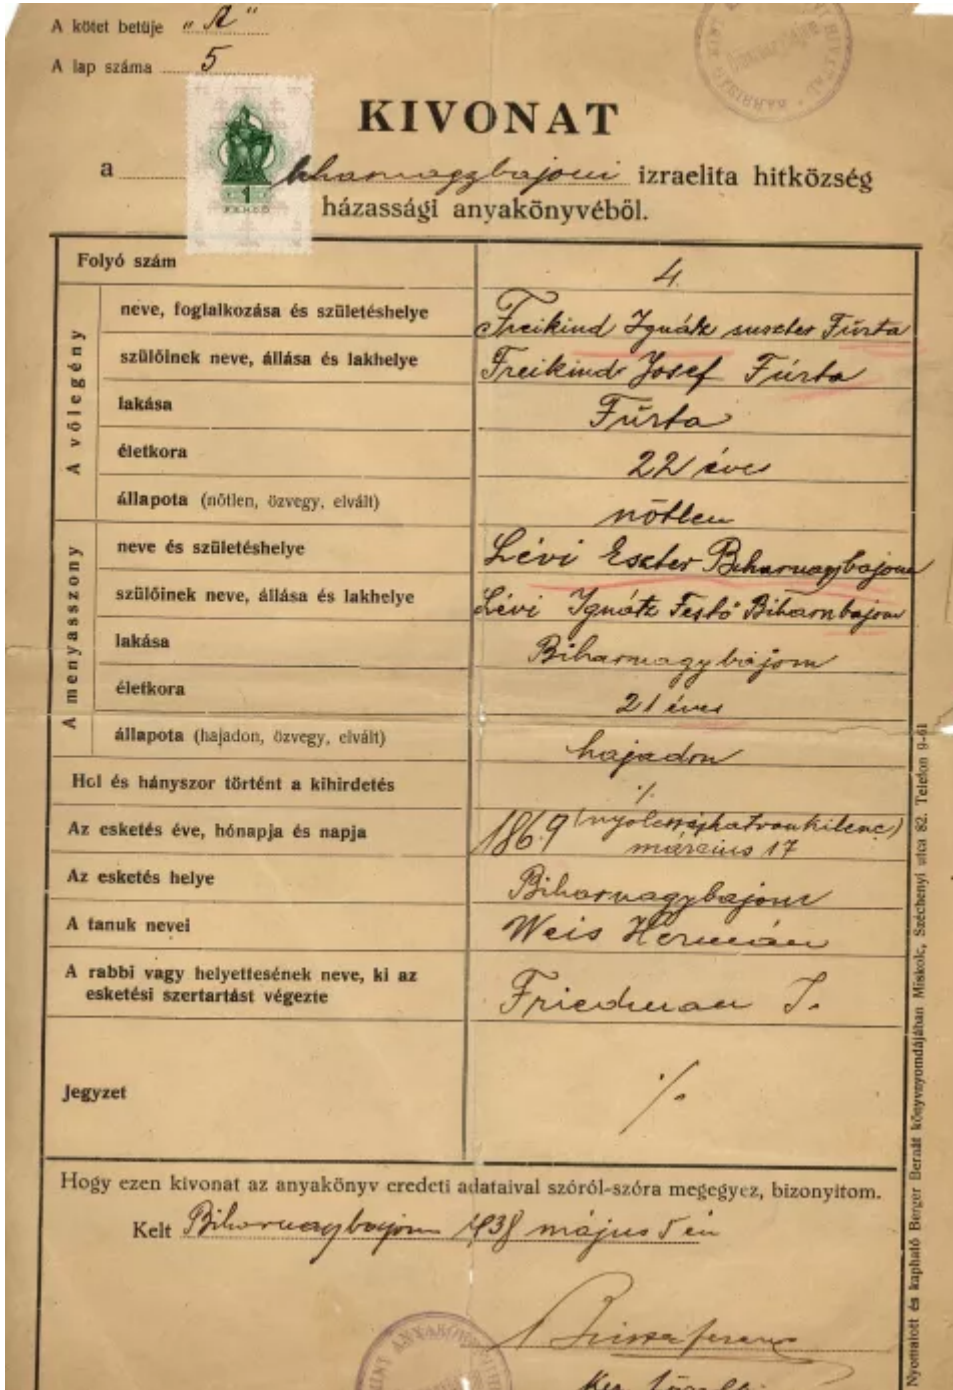 A kötet betűje „A”
A lap száma 5
KIVONAT
a biharnagybajomi izraelita hitközség
házassági anyakönyvéből.
1
PENGŐ
Folyó szám 4.
A vőlegény
neve, foglalkozása és születéshelye Freikind Ignátz suszter Fúrta
szülőinek neve, állása és lakhelye Freikind Josef Fúrta
lakása Fúrta
életkora 22 éves
állapota (nőtlen, özvegy, elvált) nőtlen
A menyasszony
neve és születéshelye Lévi Eszter Biharnagybajom
szülőinek neve, állása és lakhelye Lévi Ignátz Festő Biharnbajom
lakása Biharnagybajom
életkora 21 éves
állapota (hajadon, özvegy, elvált) hajadon
Hol és hányszor történt a kihirdetés ·/.
Az esketés éve, hónapja és napja 1869 (nyolcszázhatvankilenc)
március 17
Az esketés helye Biharnagybajom
A tanuk nevei Weis Hermán
A rabbi vagy helyettesének neve, ki az
esketési szertartást végezte Friedman I.
Jegyzet ·/.
Hogy ezen kivonat az anyakönyv eredeti adataival szóról-szóra megegyez, bizonyitom.
Kelt Biharnagybajom 1938 május 5 én
Nyomatott és kapható Berger Bernát könyvnyomdájában Miskolc, Széchenyi utca 82. Telefon 9-61